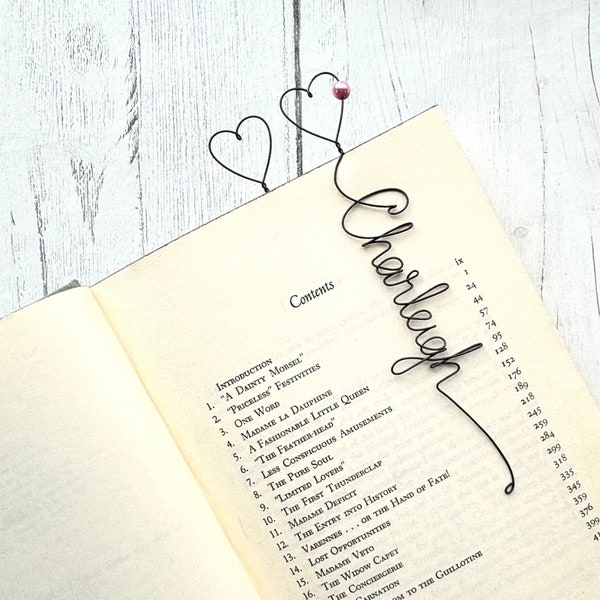 Charleigh
Contents
INTRODUCTION ix
1. "A DAINTY MORSEL" 1
2. "PRICELESS" FESTIVITIES 24
3. ONE WORD 44
4. MADAME LA DAUPHINE 57
5. A FASHIONABLE LITTLE QUEEN 74
6. "THE FEATHER-HEAD" 95
7. LESS CONSPICUOUS AMUSEMENTS 128
8. THE PURE SOUL 152
9. "LIMITED LOVERS" 176
10. THE FIRST THUNDERCLAP 189
11. MADAME DEFICIT 218
12. THE ENTRY INTO HISTORY 245
13. VARENNES . . . OR THE HAND OF FATE! 259
14. LOST OPPORTUNITIES 284
15. MADAME VETO 299
16. THE WIDOW CAPEY 318
THE CONCIERGERIE 335
345
TO THE GUILLOTINE 376
399